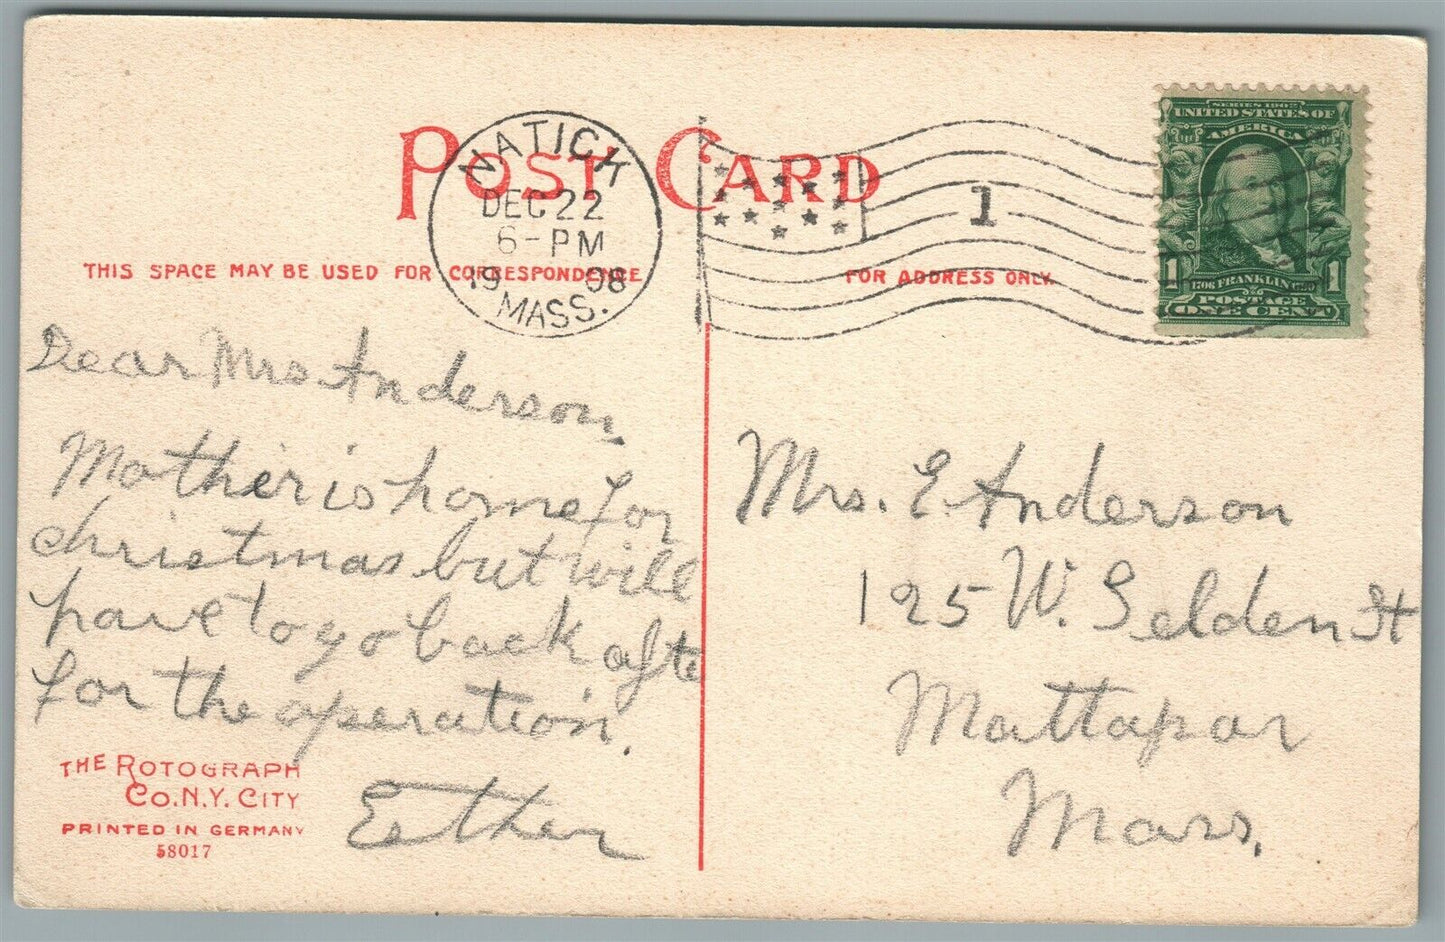 POST CARD
NATICK
DEC 22
6-PM
1908
MASS.
1
SERIES 1902
UNITED STATES OF
AMERICA
1 1706 FRANKLIN 1790 1
POSTAGE
ONE CENT
THIS SPACE MAY BE USED FOR CORRESPONDENCE
FOR ADDRESS ONLY.
Dear Mrs Anderson,
Mother is home for
christmas but will
have to go back afte
for the operation.
Esther
Mrs. E. Anderson
125 W. Selden St
Mattapan
Mass.
THE ROTOGRAPH
CO. N.Y. CITY
PRINTED IN GERMANY
58017